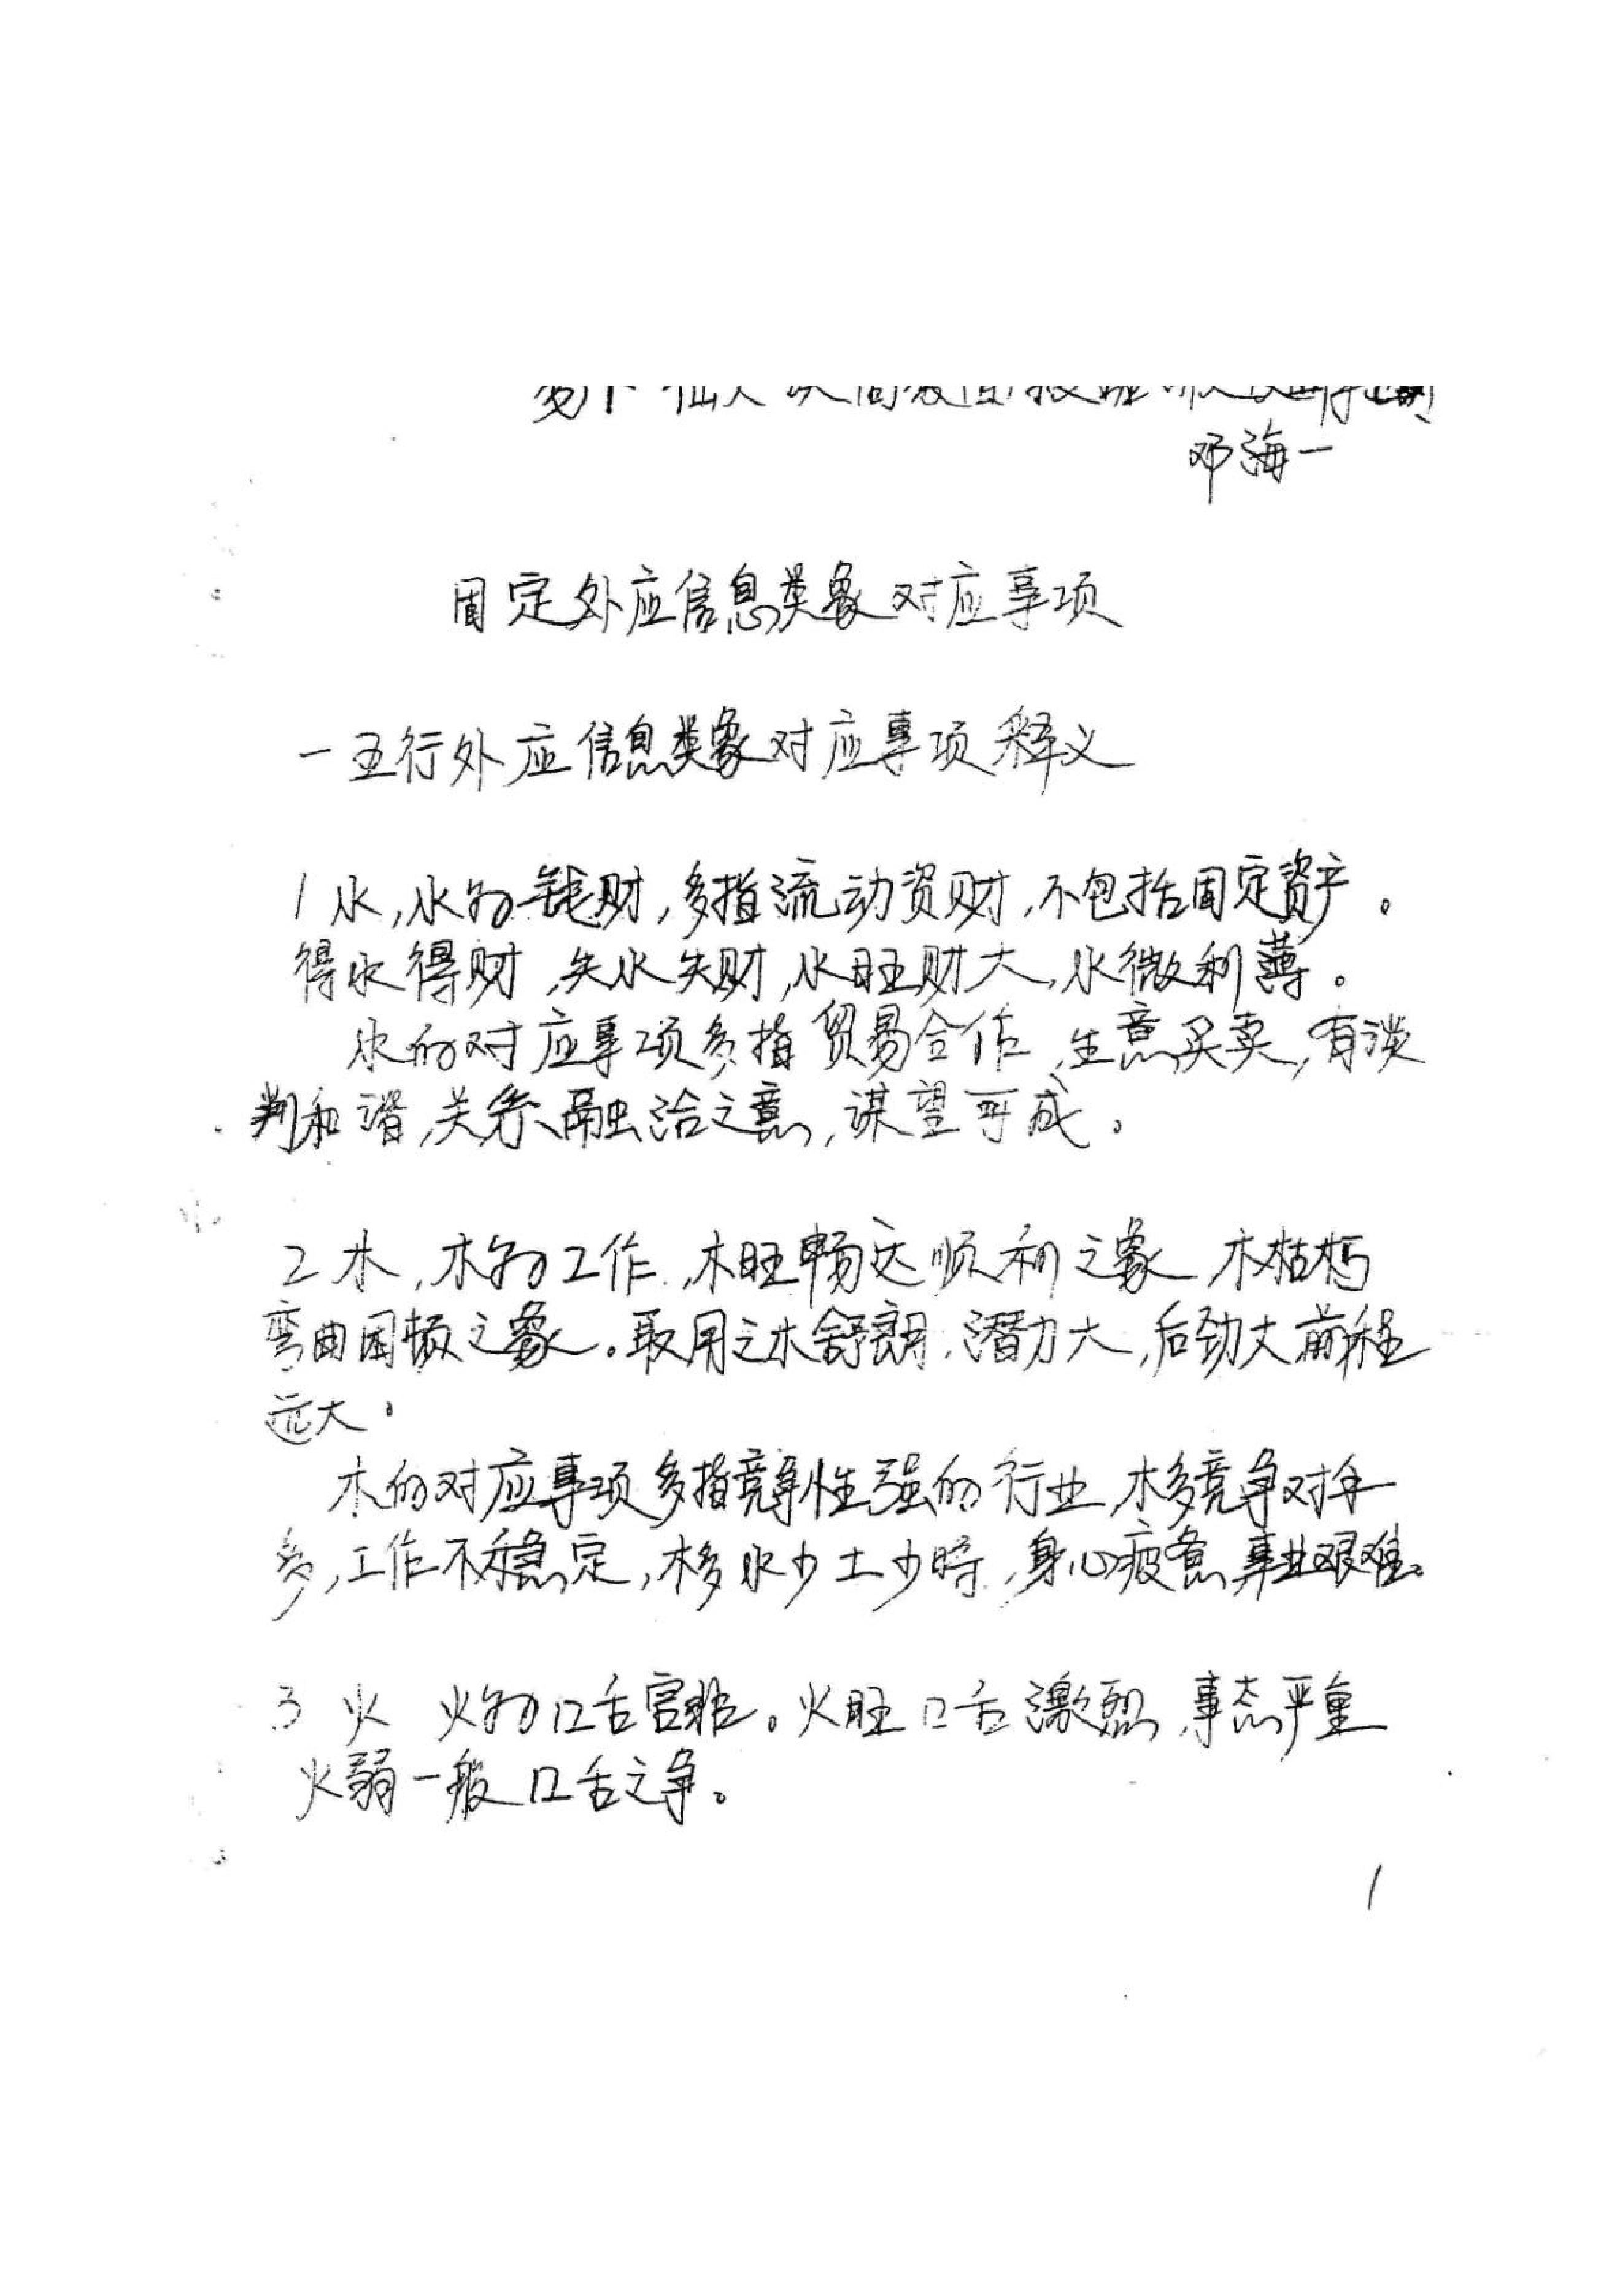 邓海一
固定外应信息类象对应事项
一五行外应信息类象对应事项释义
1水,水为钱财,多指流动资财,不包括固定資产。
得水得财,失水失财,水旺财大,水微利薄。
水的对应事项多指贸易合作,生意买卖,有谈
判和谐,关系融洽之意,谋望可成。
2木,木为工作,木旺畅达顺利之象,木枯朽
弯曲困顿之象。取用之木舒朗,潜力大,后劲大前程
远大。
木的对应事项多指竞争性强的行业,木多竞争对手
多,工作不稳定,木多水少土少時,身心疲惫,事业艰难。
3火 火为口舌官非。火旺口舌激烈,事态严重
火弱一般口舌之争。
1